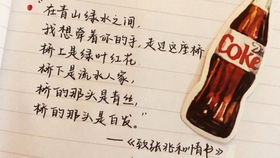 “在青山绿水之间，
我想牵着你的手，走过这座桥
桥上是绿叶红花，
桥下是流水人家，
桥的那头是青丝，
桥的那头是白发。”
——《致张兆和情书》
Coke